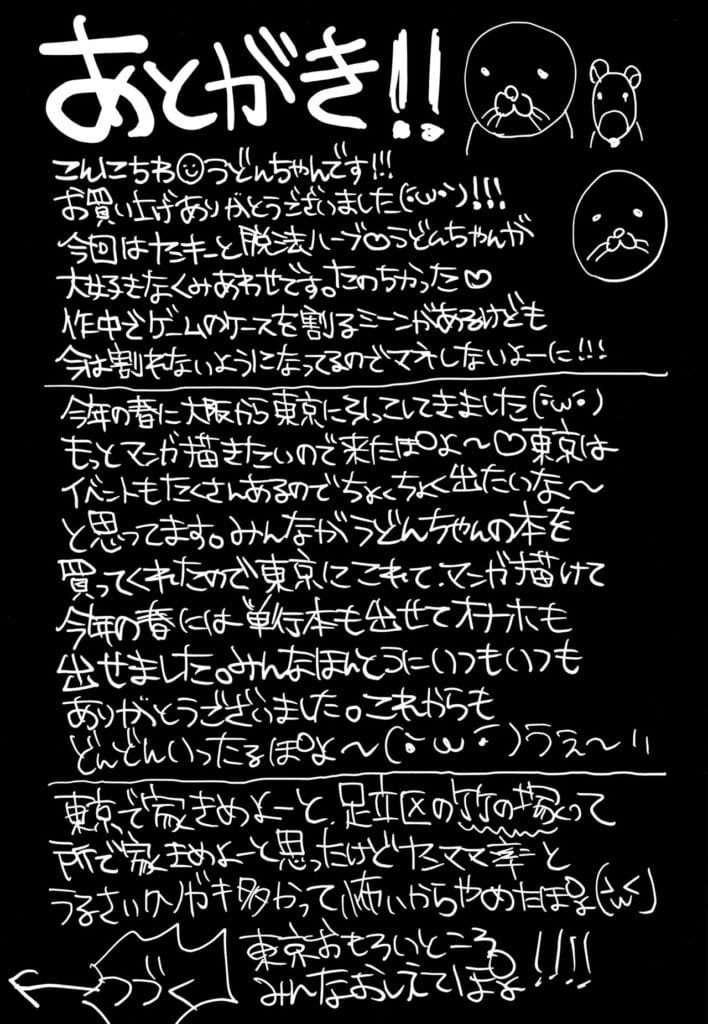 あとがき!!
こんにちわ☺うどんちゃんです!!!
お買い上げありがとうございました(･ω･)!!!
今回はヤンキーと脱法ハーブ♡うどんちゃんが
大好きなくみあわせです。たのちかった♡
作中でゲームのケースを割るシーンがあるけども
今は割れないようになってるのでマネしないよーに!!!
今年の春に大阪から東京に引っこしてきました(･ω･)
もっとマンガ描きたいので来たぽよ〜♡東京は
イベントもたくさんあるのでちょくちょく出たいな〜
と思ってます。みんながうどんちゃんの本を
買ってくれたので東京にこれて、マンガ描けて
今年の春には単行本も出せてオナホも
出せました。みんなほんとうにいつもいつも
ありがとうございました。これからも
どんどんいったるぽよ〜(･ω･)うぇ〜い
東京で家きめよーと、足立区の竹の塚って
所で家きめよーと思ったけどヤンママ率と
うるさいクソガキ多かって怖いからやめたぽよ(
東京おもろいところ
みんなおしえてぽよ!!!!
つづく